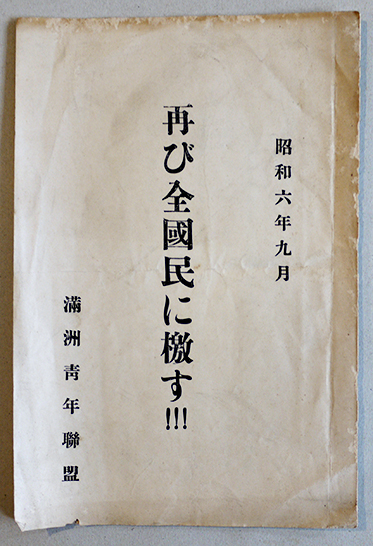 昭和六年九月
再び全國民に檄す!!!
滿洲靑年聯盟